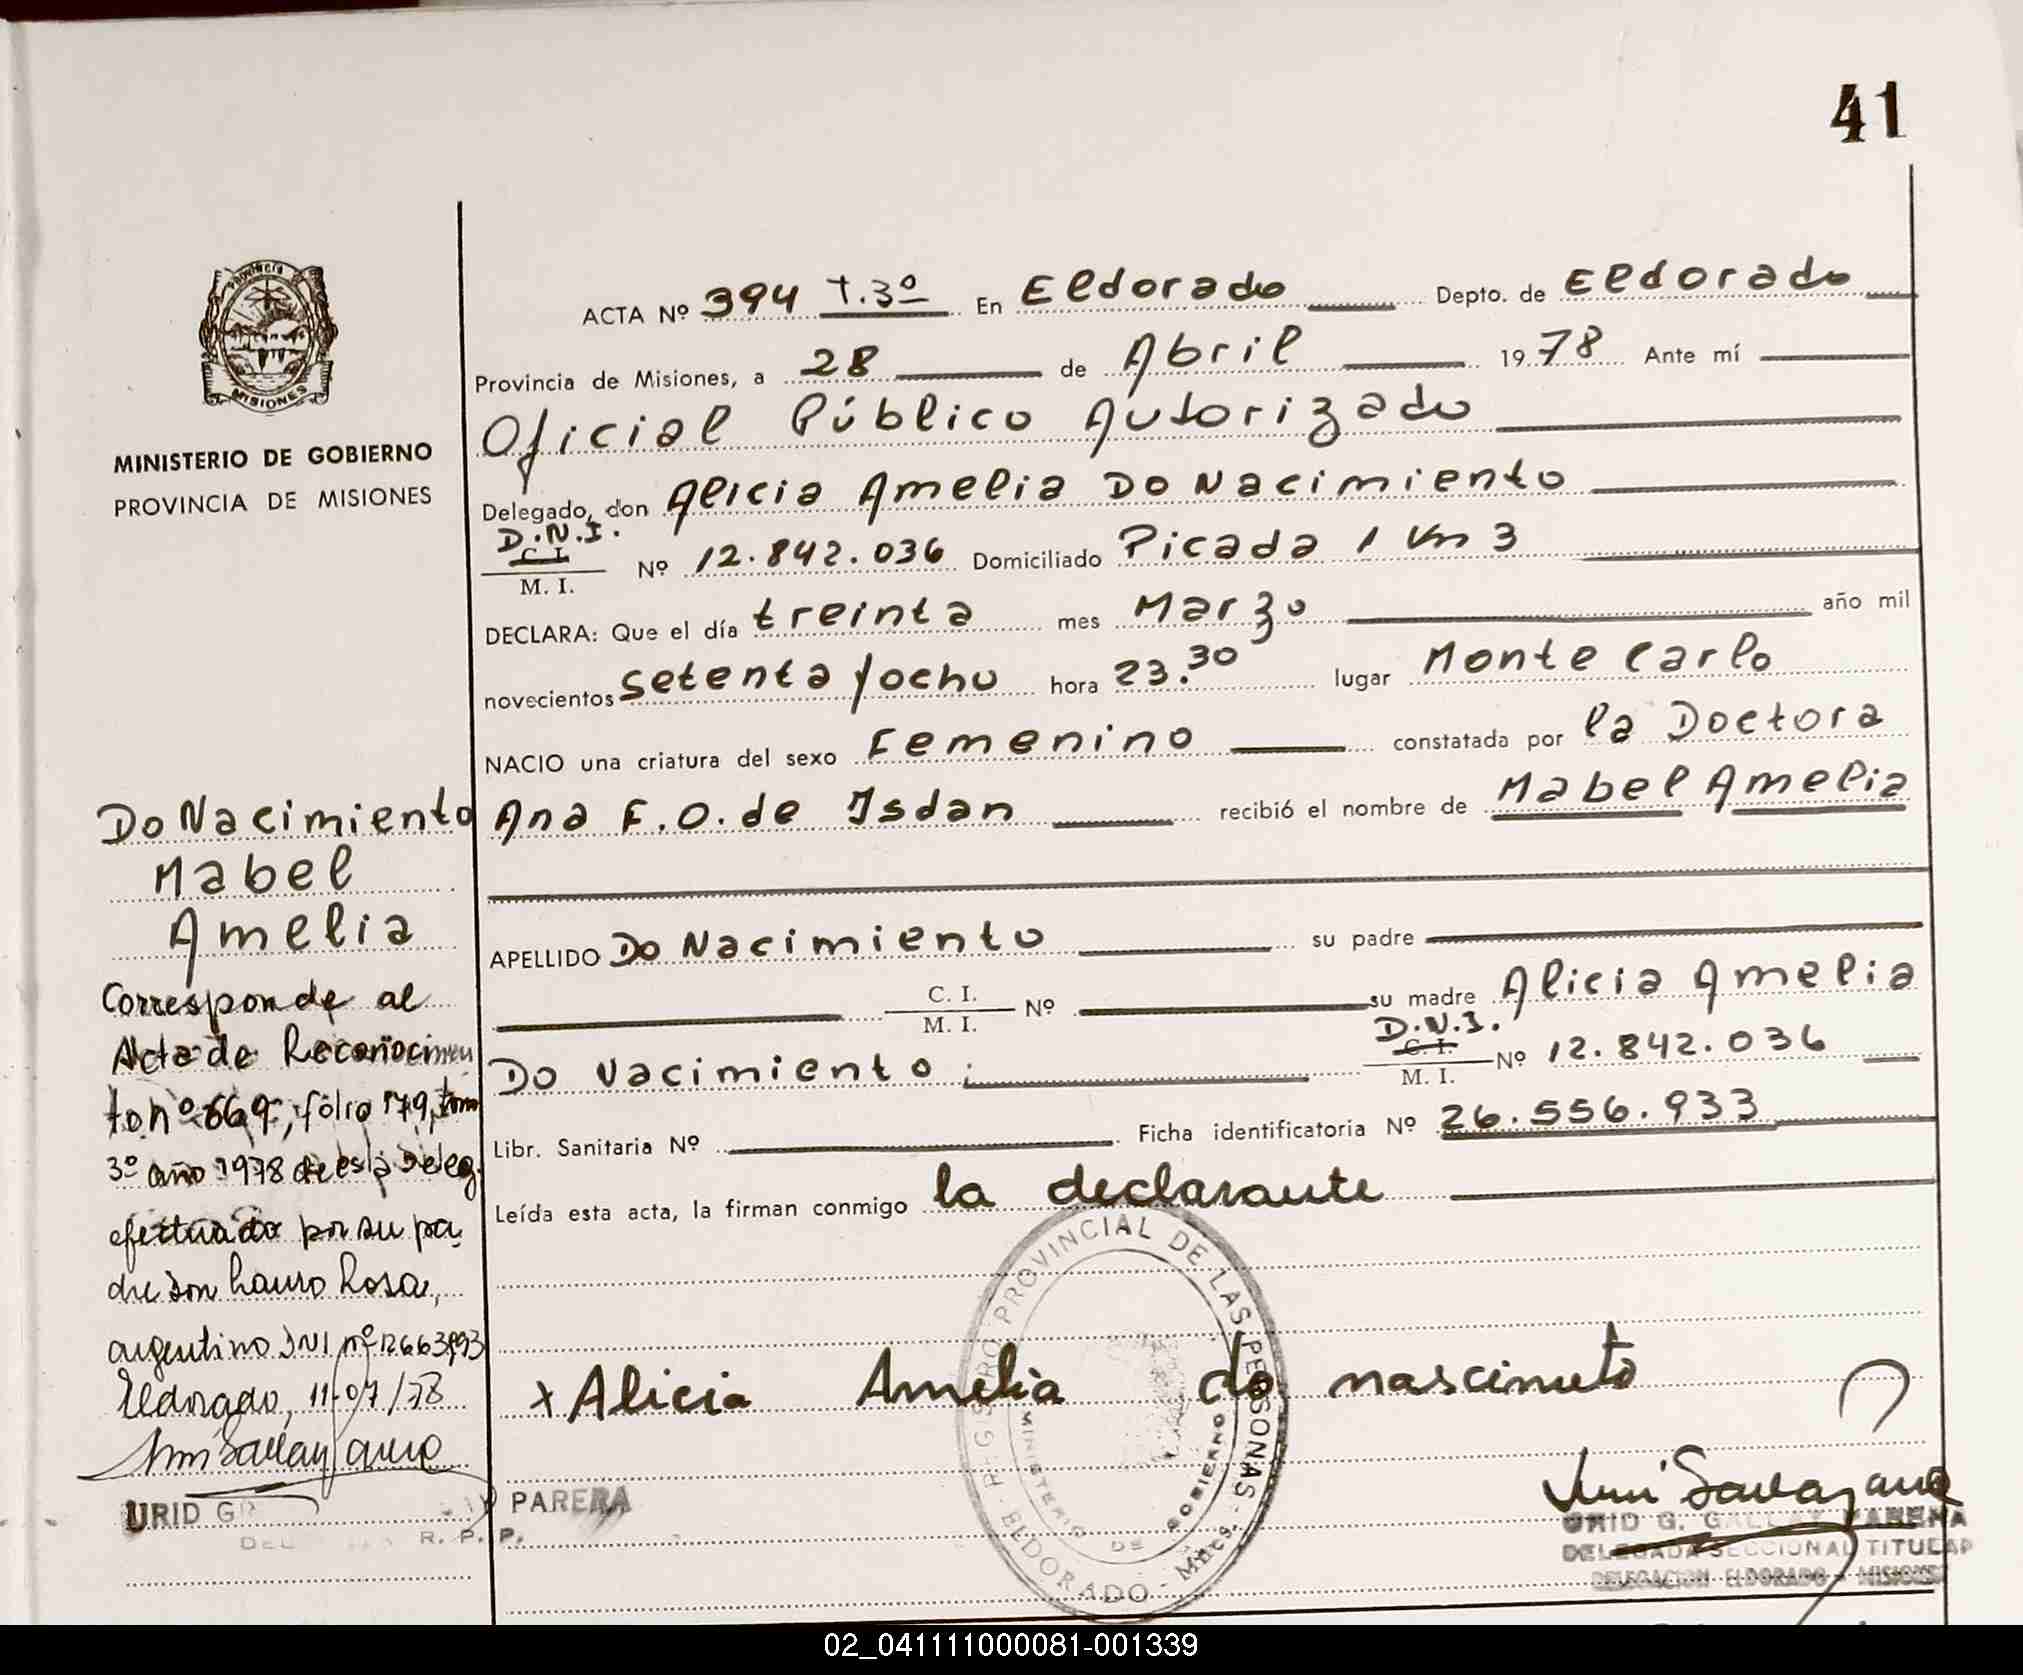 41
Provincia
MISIONES
MINISTERIO DE GOBIERNO
PROVINCIA DE MISIONES
ACTA Nº 394 T.3º En Eldorado Depto. de Eldorado
Provincia de Misiones, a 28 de Abril 1978 Ante mí
Oficial Público Autorizado
Delegado, don Alicia Amelia Do Nacimiento
D.N.I.
C.I.
M. I. Nº 12.842.036 Domiciliado Picada 1 Km 3
DECLARA: Que el día treinta mes Marzo año mil
novecientos setenta y ocho hora 23.30 lugar Monte Carlo
NACIO una criatura del sexo Femenino constatada por la Doctora
Ana F. O. de Isdan recibió el nombre de Mabel Amelia
APELLIDO Do Nacimiento su padre
C. I.
M. I. Nº su madre Alicia Amelia
Do Nacimiento; D.N.I.
C. I.
M. I. Nº 12.842.036
Libr. Sanitaria Nº Ficha identificatoria Nº 26.556.933
Leída esta acta, la firman conmigo la declarante
x Alicia Amelia do nascimeto
Do Nacimiento
Mabel
Amelia
Corresponde al
Acta de Reconocimien
to nº 669, fólio 179, tom
3º año 1978 de esta Deleg.
efectuado por su pa
dre don Lauro Rosa,
argentino DNI nº 12663893
Eldorado, 11-07/78
URID G PARERA
R. P. P.
REGISTRO PROVINCIAL DE LAS PERSONAS - ELDORADO - Mnes.
MINISTERIO DE GOBIERNO
URID G. GALLAY PARERA
DELEGADA SECCIONAL TITULAR
DELEGACION ELDORADO - MISIONES
02_041111000081-001339